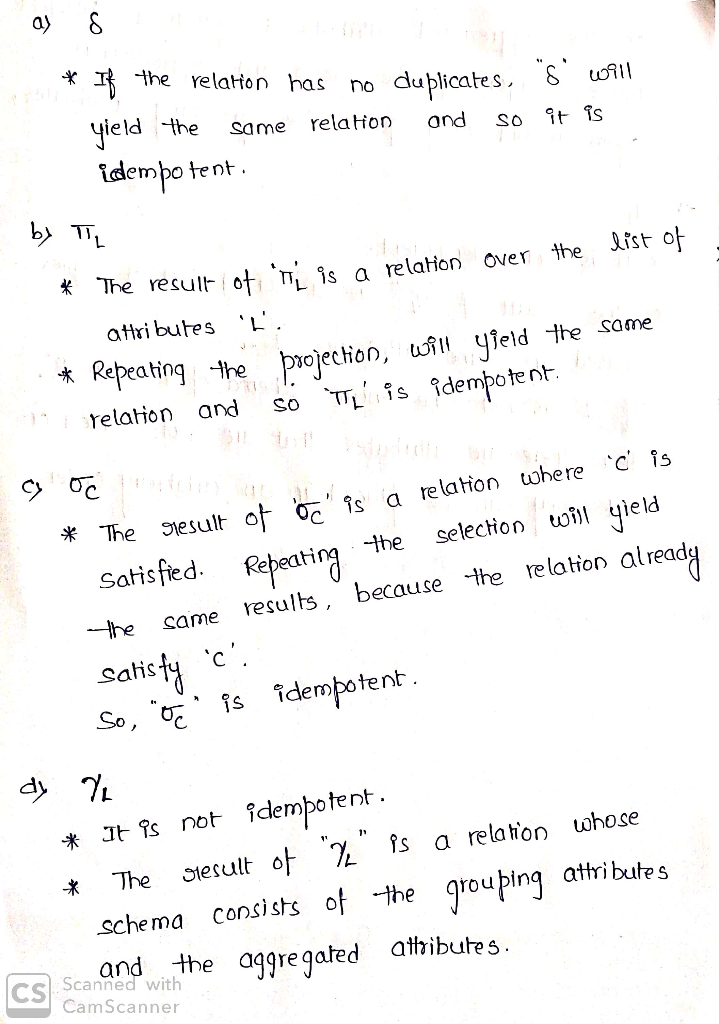 a) δ
* If the relation has no duplicates, "δ" will
yield the same relation and so it is
idempotent.
b) π_L
* The result of 'π_L' is a relation over the list of
attributes 'L'.
* Repeating the projection, will yield the same
relation and so 'π_L' is idempotent.
c) σ_C
* The result of 'σ_C' is a relation where 'C' is
satisfied. Repeating the selection will yield
the same results, because the relation already
satisfy 'C'.
So, "σ_C" is idempotent.
d) γ_L
* It is not idempotent.
* The result of "γ_L" is a relation whose
schema consists of the grouping attributes
and the aggregated attributes.
CS Scanned with
CamScanner